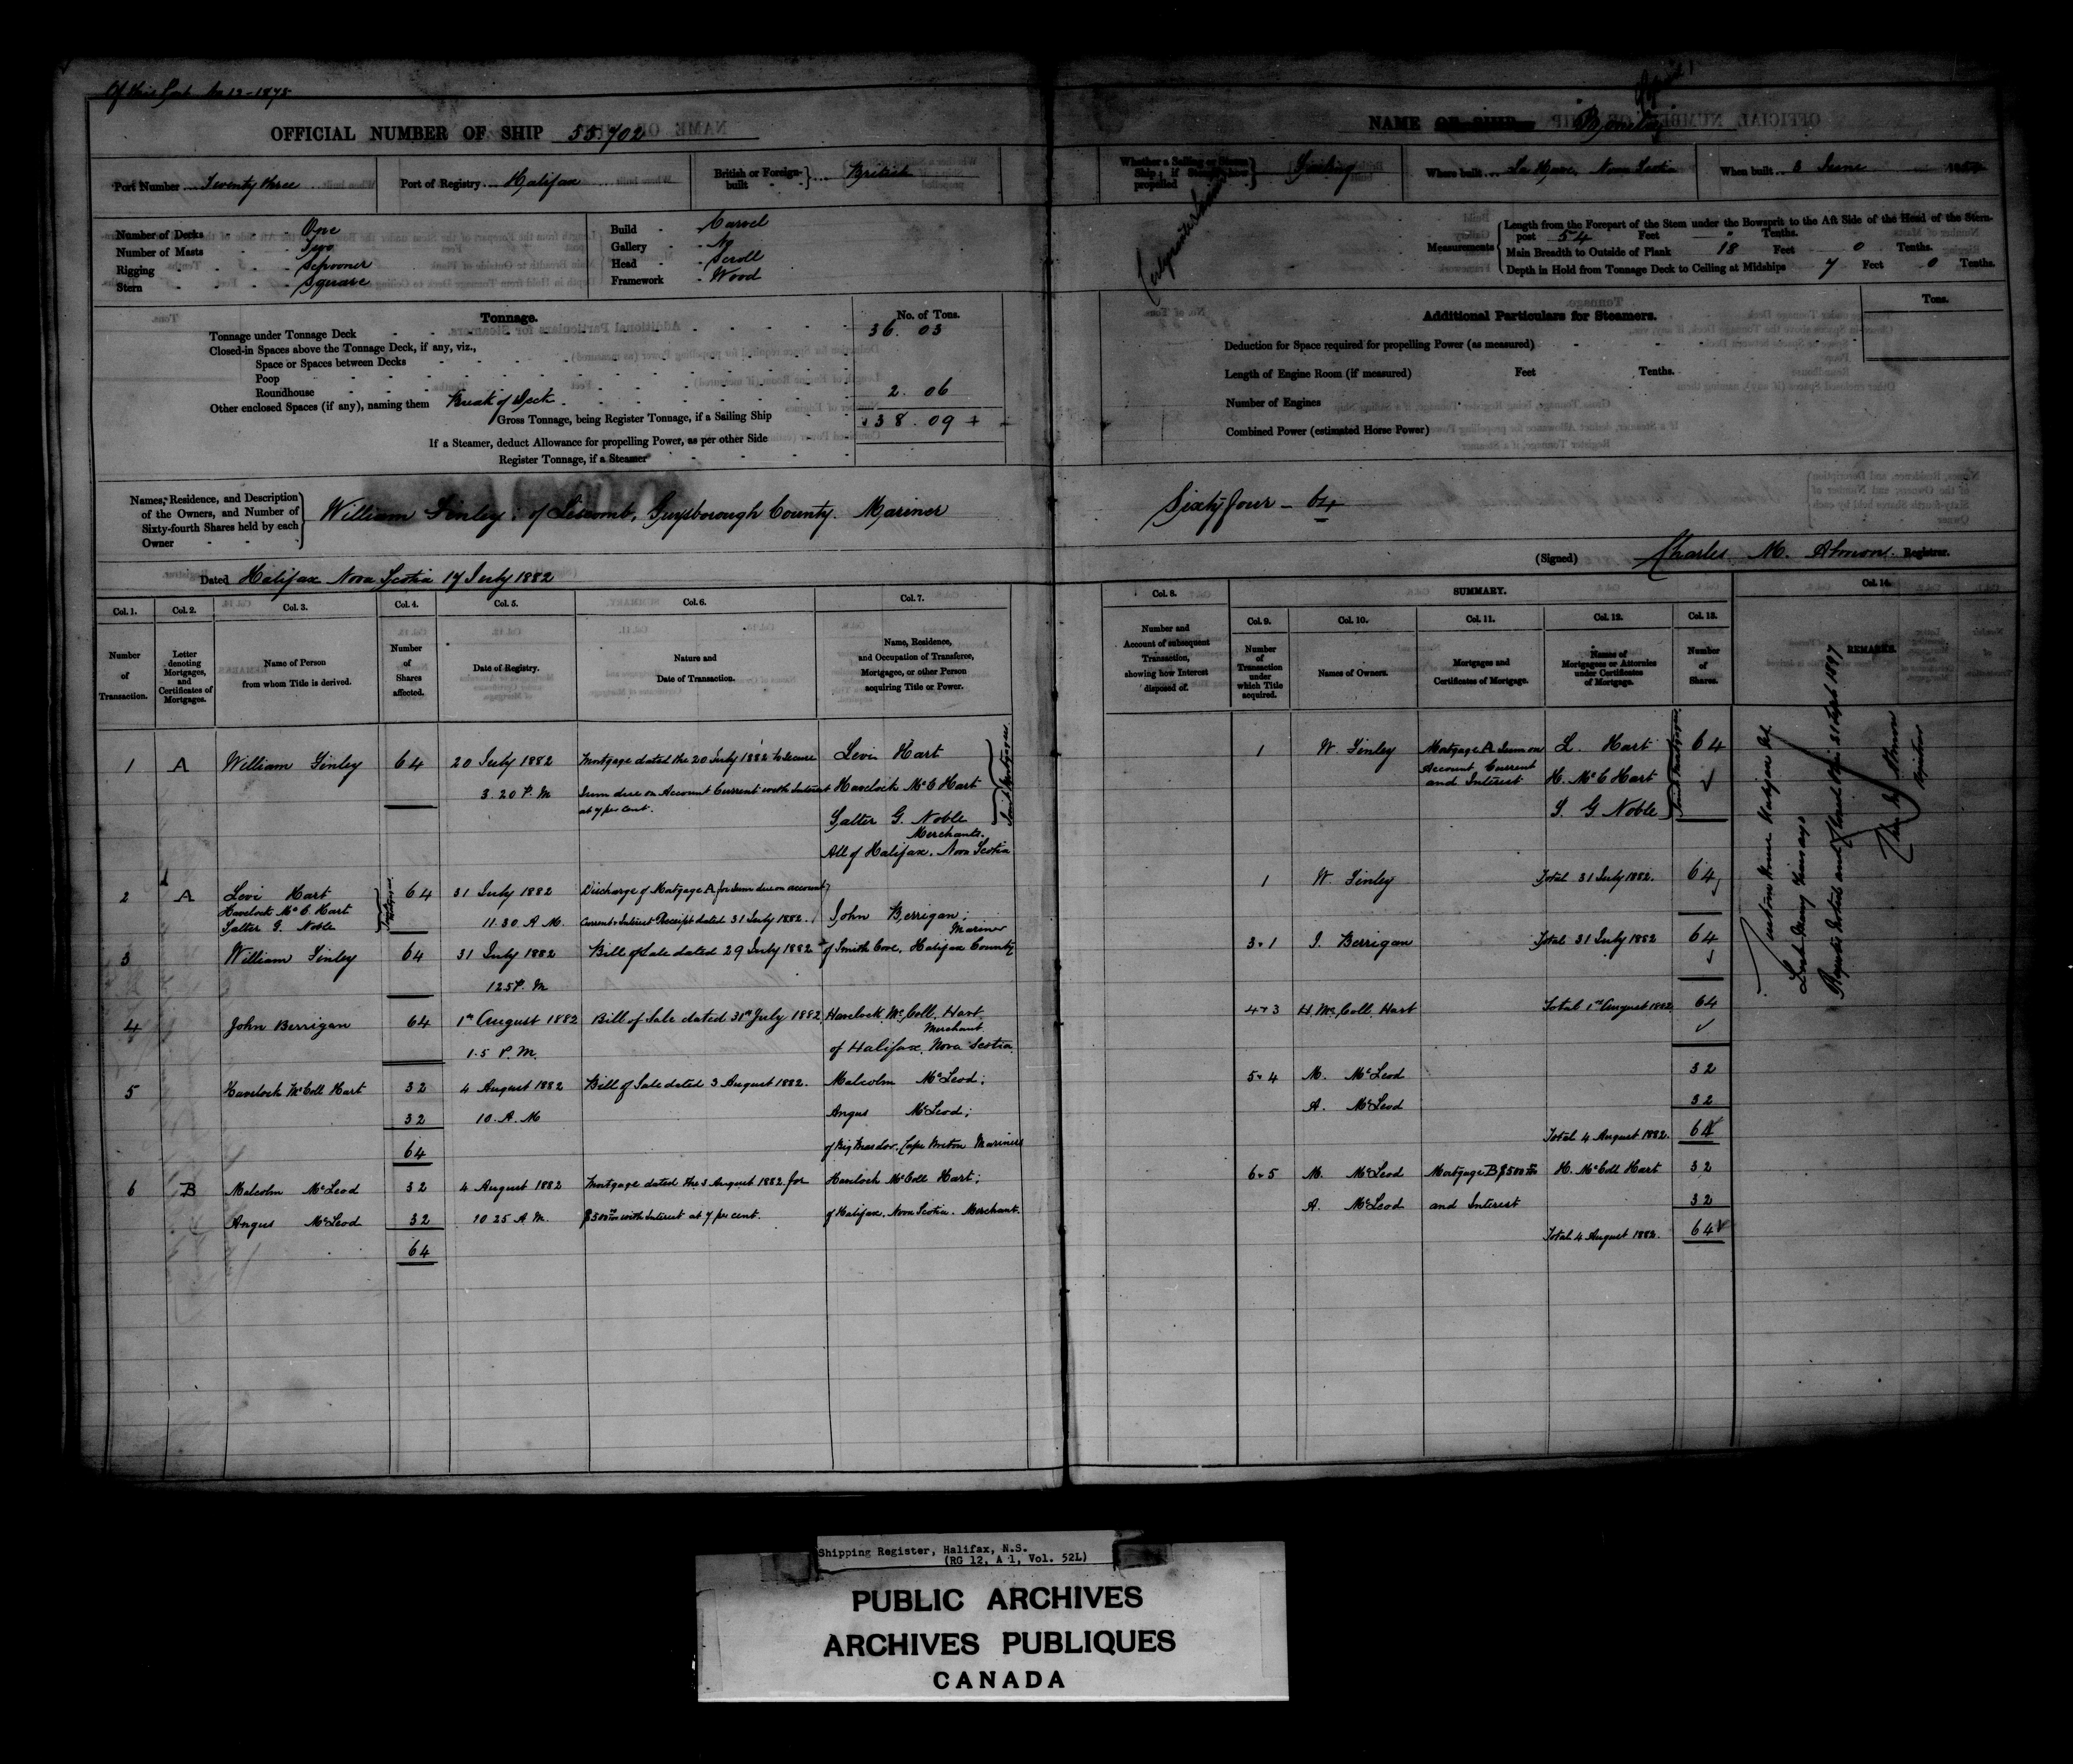 Of this Port No 13-1878
OFFICIAL NUMBER OF SHIP 55.702
Port Number Twenty three
Port of Registry Halifax
British or Foreign-built British
Number of Decks One
Number of Masts Two
Rigging Schooner
Stern Square
Build Carvel
Gallery No
Head Scroll
Framework Wood
Tonnage.
No. of Tons.
Tonnage under Tonnage Deck 36.03
Closed-in Spaces above the Tonnage Deck, if any, viz.,
Space or Spaces between Decks
Poop
Roundhouse
Other enclosed Spaces (if any), naming them Break of Deck 2.06
Gross Tonnage, being Register Tonnage, if a Sailing Ship 38.09
If a Steamer, deduct Allowance for propelling Power, as per other Side
Register Tonnage, if a Steamer
Names, Residence, and Description of the Owners, and Number of Sixty-fourth Shares held by each Owner
William Finley, of Liscomb, Guysborough County. Mariner
Dated Halifax Nova Scotia 17 July 1882
Col. 1. Col. 2. Col. 3. Col. 4. Col. 5. Col. 6. Col. 7.
Number of Transaction.
Letter denoting Mortgages, and Certificates of Mortgages.
Name of Person from whom Title is derived.
Number of Shares affected.
Date of Registry.
Nature and Date of Transaction.
Name, Residence, and Occupation of Transferee, Mortgagee, or other Person acquiring Title or Power.
1 A William Finley 64 20 July 1882 Mortgage dated the 20 July 1882 to secure Levi Hart
3.20 P.M Sum due on Account Current with Interest Havelock McC Hart
at 7 per cent.
Salter G. Noble
Merchants.
All of Halifax. Nova Scotia
Joint Mortgagees
2 A Levi Hart 64 31 July 1882 Discharge of Mortgage A for Sum due on account
Havelock McC Hart
Salter G. Noble 11.30 A.M. Current & Interest Receipt dated 31 July 1882. John Berrigan;
Mariner
3 William Finley 64 31 July 1882 Bill of Sale dated 29 July 1882 of Smith Cove, Halifax County
1 25 P.M
4 John Berrigan 64 1st August 1882 Bill of Sale dated 31st July 1882 Havelock McColl Hart
Merchant
1.5 P.M. of Halifax, Nova Scotia
5 Havelock McColl Hart 32 4 August 1882 Bill of Sale dated 3 August 1882. Malcolm McLeod;
32 10. A.M Angus McLeod;
64 of Big Meadow, Cape Breton Mariners
6 B Malcolm McLeod 32 4 August 1882 Mortgage dated the 3 August 1882 for Havelock McColl Hart;
Angus McLeod 32 10 25 A.M. with Interest at 7 per cent. of Halifax, Nova Scotia. Merchant.
64
April
NAME OF SHIP
Whether a Sailing or Steam Ship; if Steam, how propelled Sailing
Where built La Have, Nova Scotia
When built 3 June
Measurements
Length from the Forepart of the Stem under the Bowsprit to the Aft Side of the Head of the Stern-post 54 Feet Tenths.
Main Breadth to Outside of Plank 18 Feet 0 Tenths.
Depth in Hold from Tonnage Deck to Ceiling at Midships 7 Feet 0 Tenths.
Additional Particulars for Steamers.
Tons.
Deduction for Space required for propelling Power (as measured)
Length of Engine Room (if measured) Feet Tenths.
Number of Engines
Combined Power (estimated Horse Power)
Sixty four - 64
(Signed) Charles M. Almon. Registrar.
Col. 8. SUMMARY. Col. 14.
Col. 9. Col. 10. Col. 11. Col. 12. Col. 13.
Number and Account of subsequent Transaction, showing how Interest disposed of.
Number of Transaction under which Title acquired.
Names of Owners.
Mortgages and Certificates of Mortgage.
Names of Mortgagees or Attornies under Certificates of Mortgage.
Number of Shares.
REMARKS.
1 W. Finley Mortgage A Sum on L. Hart 64
Account Current
and Interest H. McC Hart
S. G. Noble
Joint Mortgagees
1 W. Finley Total 31 July 1882. 64
3 & 1 J. Berrigan Total 31 July 1882 64
4 & 3 H. McColl Hart Total 1st August 1882 64
5 & 4 M. McLeod 32
A. McLeod 32
Total 4 August 1882. 64
6 & 5 M. McLeod Mortgage B $500 H. McColl Hart 32
A. McLeod and Interest 32
Total 4 August 1882. 64
Lost many years ago
Shipping Register, Halifax, N.S.
(RG 12, A 1, Vol. 52L)
PUBLIC ARCHIVES
ARCHIVES PUBLIQUES
CANADA